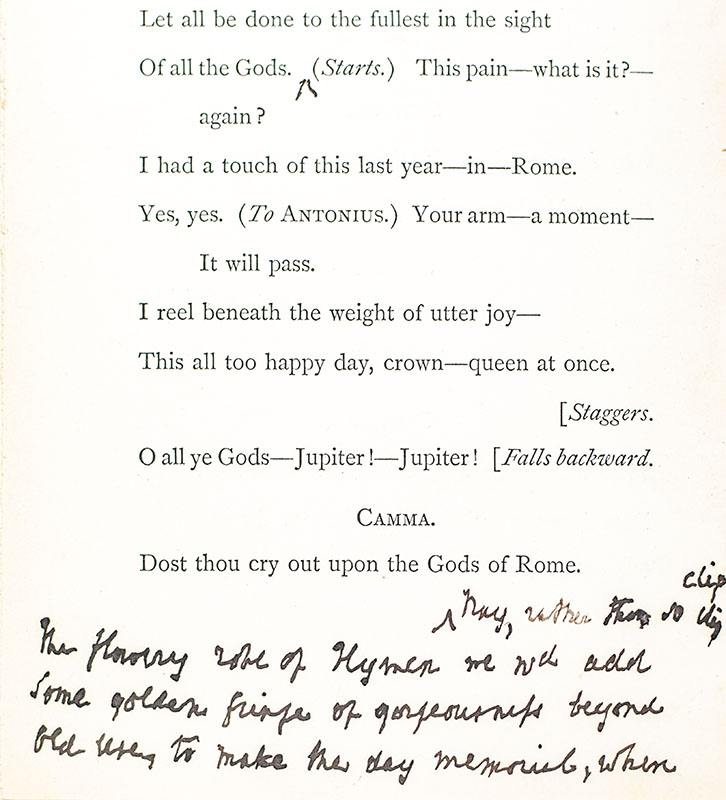 Let all be done to the fullest in the sight
Of all the Gods. (Starts.) This pain—what is it?—
again?
I had a touch of this last year—in—Rome.
Yes, yes. (To ANTONIUS.) Your arm—a moment—
It will pass.
I reel beneath the weight of utter joy—
This all too happy day, crown—queen at once.
[Staggers.
O all ye Gods—Jupiter!—Jupiter! [Falls backward.
CAMMA.
Dost thou cry out upon the Gods of Rome.
clip
Nay, rather than so clip
The flowery robe of Hymen we wd add
Some golden fringe of gorgeousness beyond
Old use, to make the day memorial, when